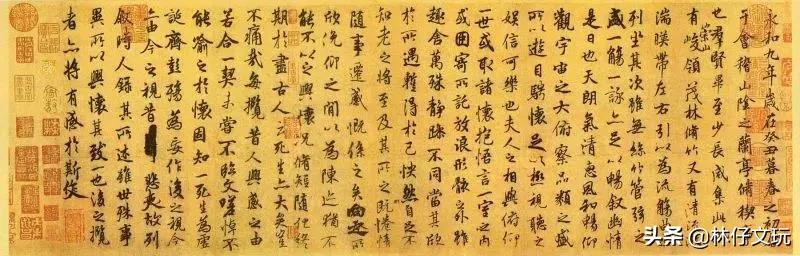 永和九年歲在癸丑暮春之初會
于會稽山陰之蘭亭脩禊事
也羣賢畢至少長咸集此地
有崇山峻領茂林脩竹又有清流激
湍暎帶左右引以為流觴曲水
列坐其次雖無絲竹管弦之
盛一觴一詠亦足以暢敘幽情
是日也天朗氣清惠風和暢仰
觀宇宙之大俯察品類之盛
所以遊目騁懷足以極視聽之
娛信可樂也夫人之相與俯仰
一世或取諸懷抱悟言一室之內
或因寄所託放浪形骸之外雖
趣舍萬殊靜躁不同當其欣
於所遇暫得於己怏然自足不
知老之將至及其所之既惓情
隨事遷感慨係之矣向之所
欣俛仰之閒以為陳迹猶不
能不以之興懷況脩短隨化終
期於盡古人云死生亦大矣豈
不痛哉每攬昔人興感之由
若合一契未嘗不臨文嗟悼不
能喻之於懷固知一死生為虛
誕齊彭殤為妄作後之視今
亦由今之視昔悲夫故列
敘時人錄其所述雖世殊事
異所以興懷其致一也後之攬
者亦將有感於斯文
头条 @林仔文玩